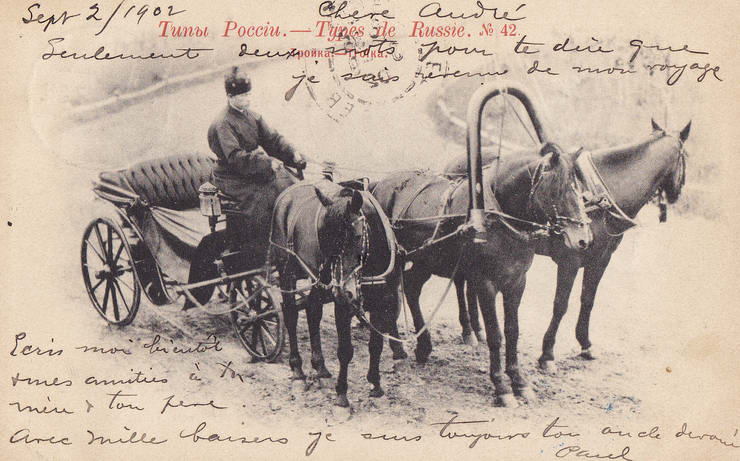 Sept 2/1902 Chere André
Типы Россіи.—Types de Russie. № 42.
Тройка.
Seulement deux mots pour te dire que
je suis revenu de mon voyage
Ecris moi bientôt
& mes amitiés à
mère & ton père.
Avec mille baisers je suis toujours ton oncle devoué
Paul